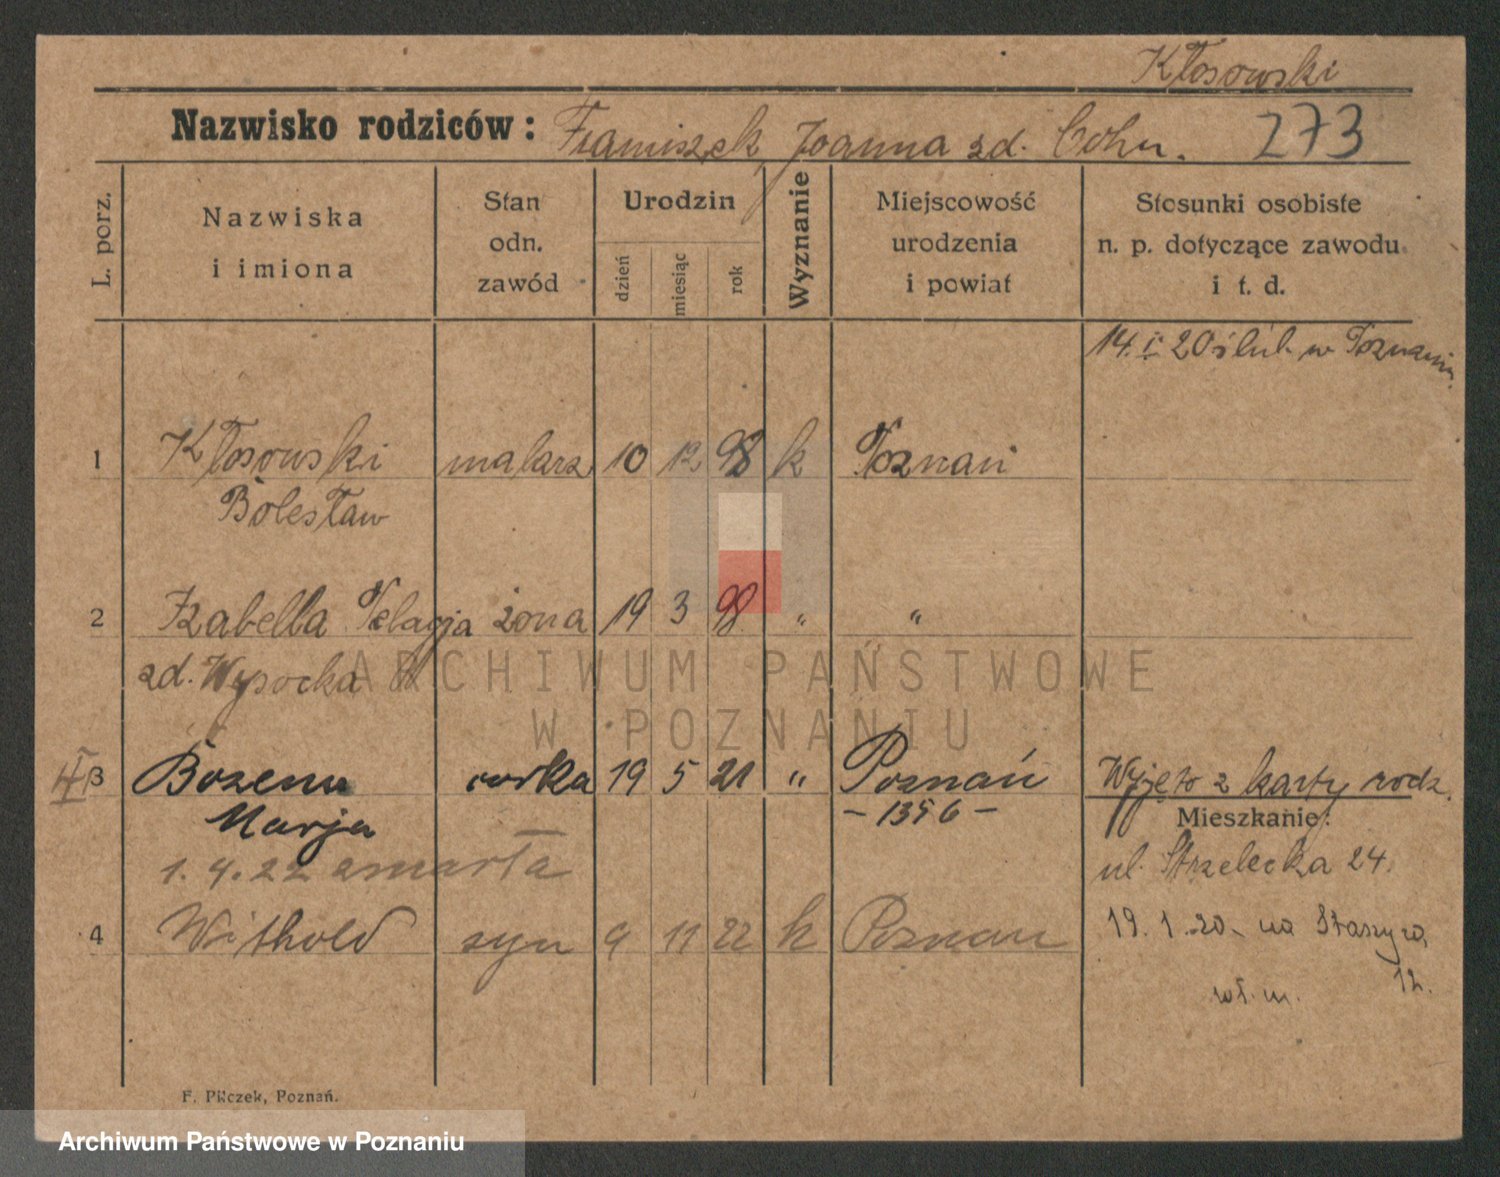 Kłosowski
Nazwisko rodziców: Franciszek Joanna zd. Cohn. 273
L. porz.
Nazwiska i imiona
Stan odn. zawód
Urodzin
dzień
miesiąc
rok
Wyznanie
Miejscowość urodzenia i powiat
Stosunki osobiste n. p. dotyczące zawodu i t. d.
14. I. 20 ślub w Poznaniu.
1 Kłosowski malarz 10 12 98 k Poznań
Bolesław
2 Izabella Pelagja żona 19 3 98 " "
zd. Wysocka
3 Bożena corka 19 5 21 " Poznań Wyjęto z karty rodz.
Marja - 1356 -
Mieszkanie:
1.4.22 zmarła
ul. Strzelecka 24.
4 Withold syn 9 11 22 k Poznań
19. 1. 20. na Staszyca
12.
F. Pilczek, Poznań.
ARCHIWUM PAŃSTWOWE
W POZNANIU
Archiwum Państwowe w Poznaniu